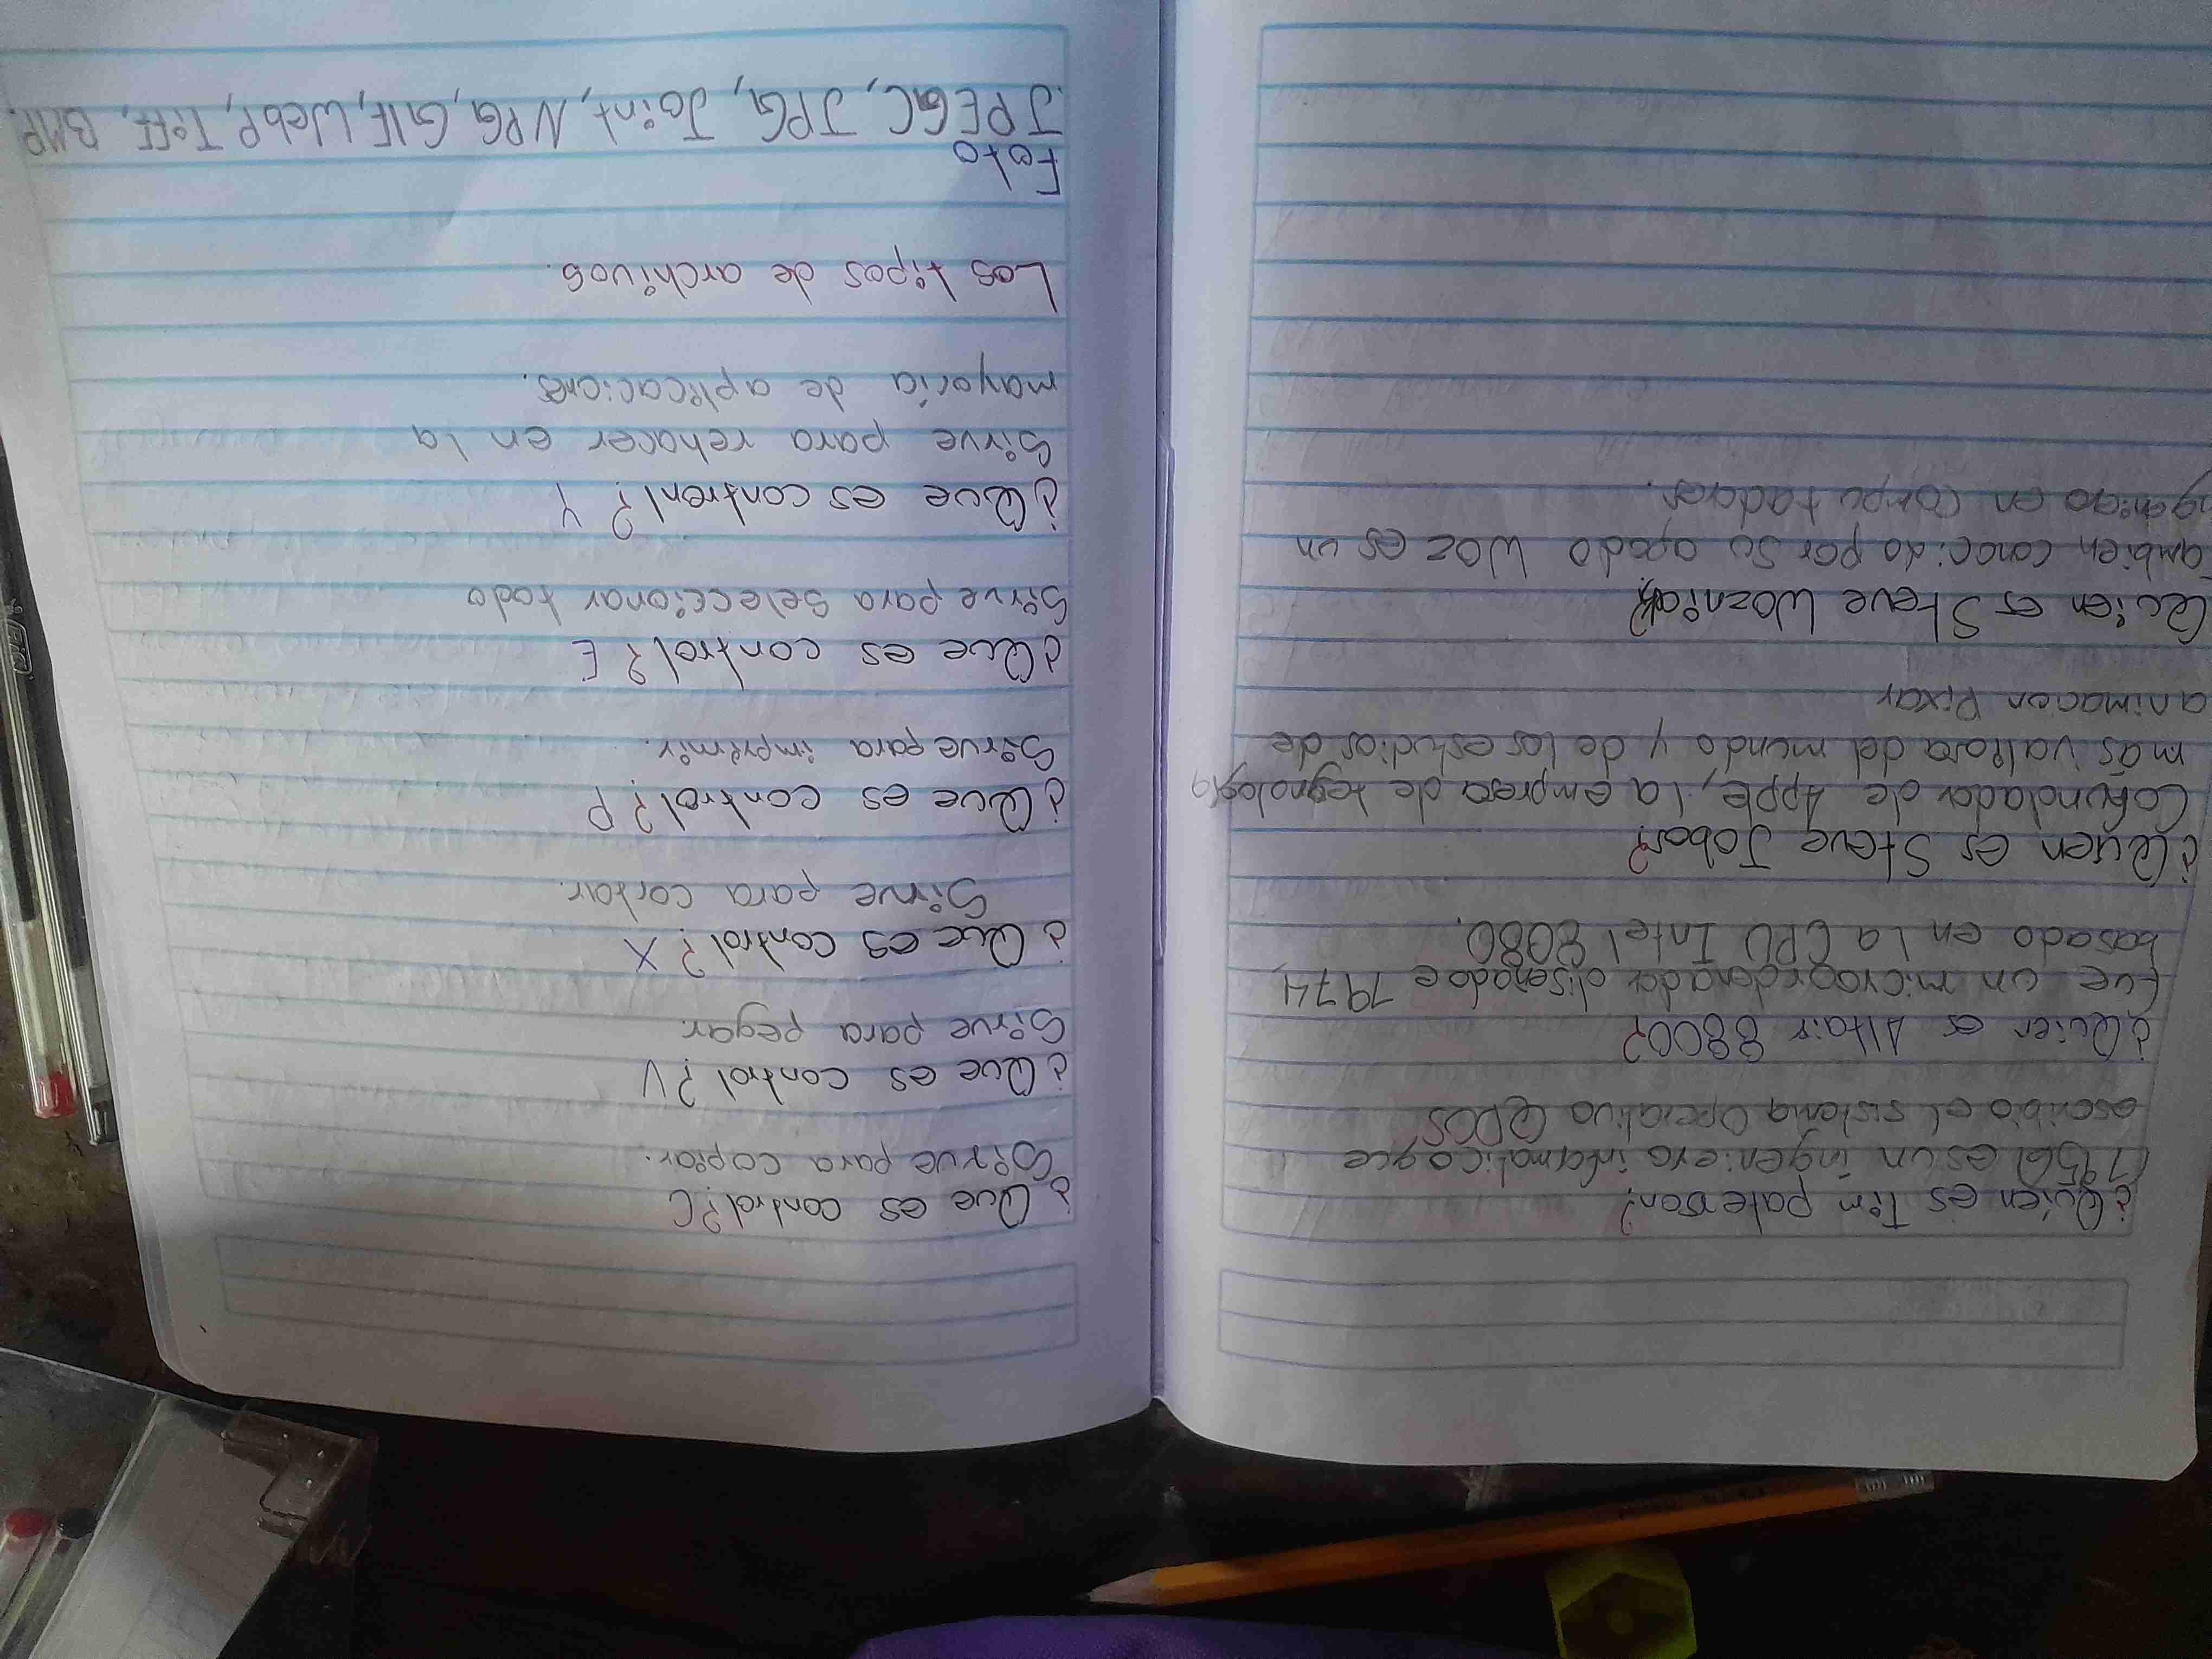 ¿Quien es Tim paterson?
(1956) es un ingeniero informatico que
escribio el sistema operativo QDOS
¿Quien es Altair 8800?
fue un microordenador diseñado e 1974
basado en la CPU Intel 8080.
¿Quien es Steve Jobos?
Cofundador de Apple, la empresa de tegnologia
mas valiosa del mundo y de los estudios de
animacion Pixar
Quien es Steve Wozniak?
ambien conocido por su apodo Woz es un
en computadores.
¿Que es control? C
Sirve para copiar.
¿Que es control? V
Sirve para pegar.
¿Que es control? X
Sirve para cortar.
¿Que es control? P
Sirve para imprimir.
¿Que es control? E
Sirve para seleccionar todo
¿Que es contronl? Y
Sirve para rehacer en la
mayoria de aplicaciones.
Los tipos de archivos.
Foto
JPEGC, JPG, Joint, NPG, GIF, WebP, Tiff, BMP.